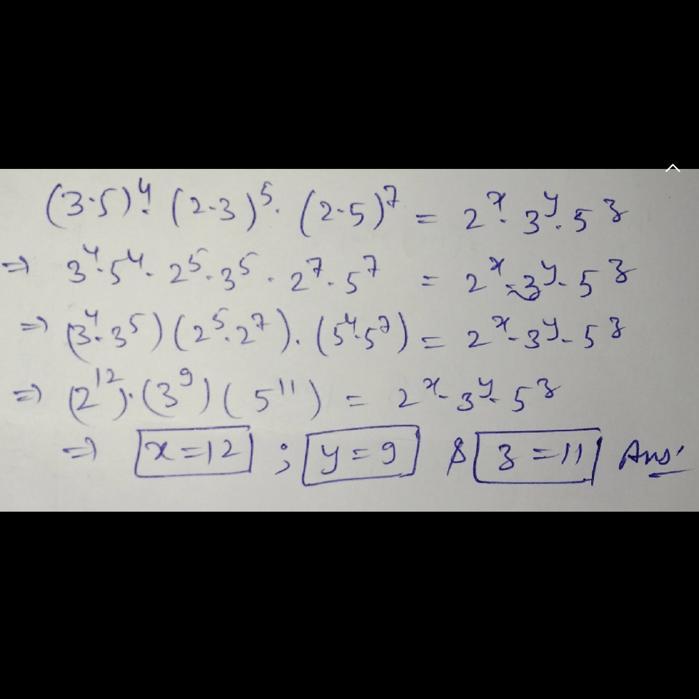 (3·5)⁴· (2·3)⁵· (2·5)⁷ = 2ˣ· 3ʸ· 5ᶻ
⇒ 3⁴·5⁴· 2⁵·3⁵· 2⁷·5⁷ = 2ˣ·3ʸ·5ᶻ
⇒ (3⁴·3⁵)(2⁵·2⁷)·(5⁴·5⁷) = 2ˣ·3ʸ·5ᶻ
⇒ (2¹²)·(3⁹)(5¹¹) = 2ˣ·3ʸ·5ᶻ
⇒ x=12 ; y=9 & z=11 Ans.